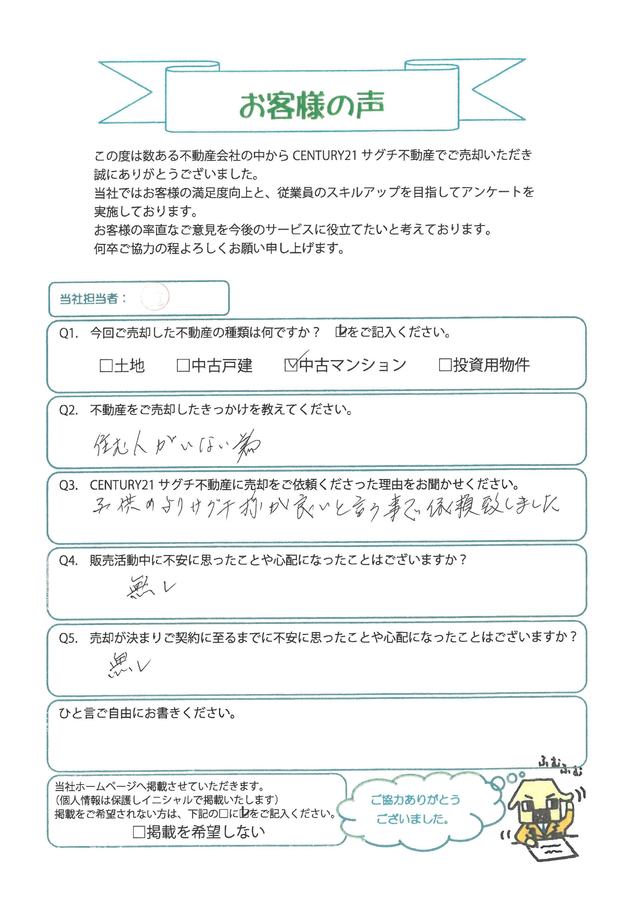 お客様の声
この度は数ある不動産会社の中から CENTURY21 サグチ不動産でご売却いただき
誠にありがとうございました。
当社ではお客様の満足度向上と、従業員のスキルアップを目指してアンケートを
実施しております。
お客様の率直なご意見を今後のサービスに役立てたいと考えております。
何卒ご協力の程よろしくお願い申し上げます。
当社担当者：
Q1. 今回ご売却した不動産の種類は何ですか？ ☑をご記入ください。
□土地 □中古戸建 ☑中古マンション □投資用物件
Q2. 不動産をご売却したきっかけを教えてください。
住む人がいない為
Q3. CENTURY21 サグチ不動産に売却をご依頼くださった理由をお聞かせください。
子供のよりサグチ様が良いと言う事で依頼致しました
Q4. 販売活動中に不安に思ったことや心配になったことはございますか？
無し
Q5. 売却が決まりご契約に至るまでに不安に思ったことや心配になったことはございますか？
無し
ひと言ご自由にお書きください。
ふむふむ
当社ホームページへ掲載させていただきます。
（個人情報は保護しイニシャルで掲載いたします）
掲載をご希望されない方は、下記の□に☑をご記入ください。
□掲載を希望しない
ご協力ありがとう
ございました。